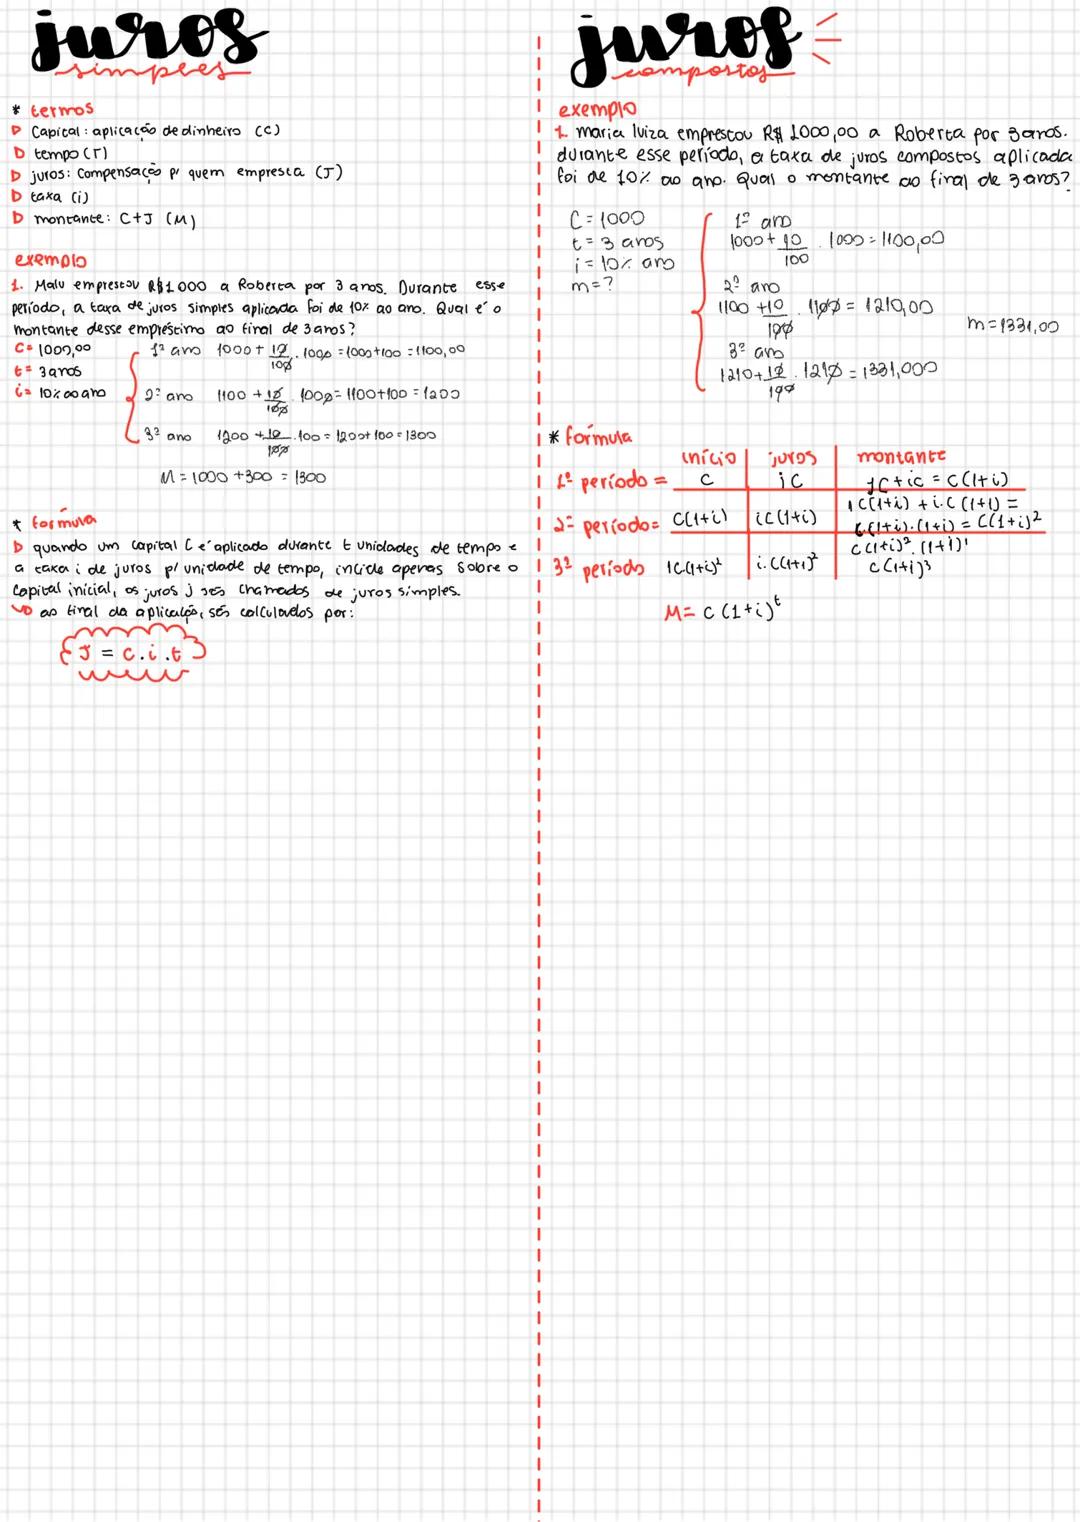 juros
simples
* termos
▷ Capital: aplicação de dinheiro (C)
▷ tempo (T)
▷ juros: Compensação p/ quem empresta (J)
▷ taxa (i)
▷ montante: C+J (M)
exemplo
1. Malu emprestou R$1000 a Roberta por 3 anos. Durante esse
período, a taxa de juros simples aplicada foi de 10% ao ano. Qual é o
montante desse empréstimo ao final de 3 anos?
C= 1000,00
t= 3 anos
i= 10% ao ano
1º ano 1000 + 10/100 . 1000 = 1000+100 = 1100,00
2º ano 1100 + 10/100 . 1000 = 1100+100 = 1200
3º ano 1200 + 10/100 . 100 = 1200+100 = 1300
M = 1000 +300 = 1300
* fórmula
▷ quando um capital C é aplicado durante t unidades de tempo e
a taxa i de juros p/ unidade de tempo, incide apenas sobre o
capital inicial, os juros j são chamados de juros simples.
↳ ao final da aplicação, são calculados por:
J = C.i.t
juros
compostos
exemplo
1. maria luiza emprestou R$ 1000,00 a Roberta por 3 anos.
durante esse período, a taxa de juros compostos aplicada
foi de 10% ao ano. Qual o montante ao final de 3 anos?
C = 1000
t = 3 anos
i = 10% ano
m = ?
1º ano
1000 + 10/100 . 1000 = 1100,00
2º ano
1100 + 10/100 . 1100 = 1210,00
3º ano
1210 + 10/100 . 1210 = 1331,000
m = 1331,00
* fórmula
início juros montante
1º período = C iC 1C + iC = C(1+i)
2º período = C(1+i) iC(1+i) 1C(1+i) + i.C(1+i) =
C(1+i).(1+i) = C(1+i)²
3º período 1C(1+i)² i.C(1+i)² C(1+i)².(1+i)¹
C(1+i)³
M = C(1+i)ᵗ